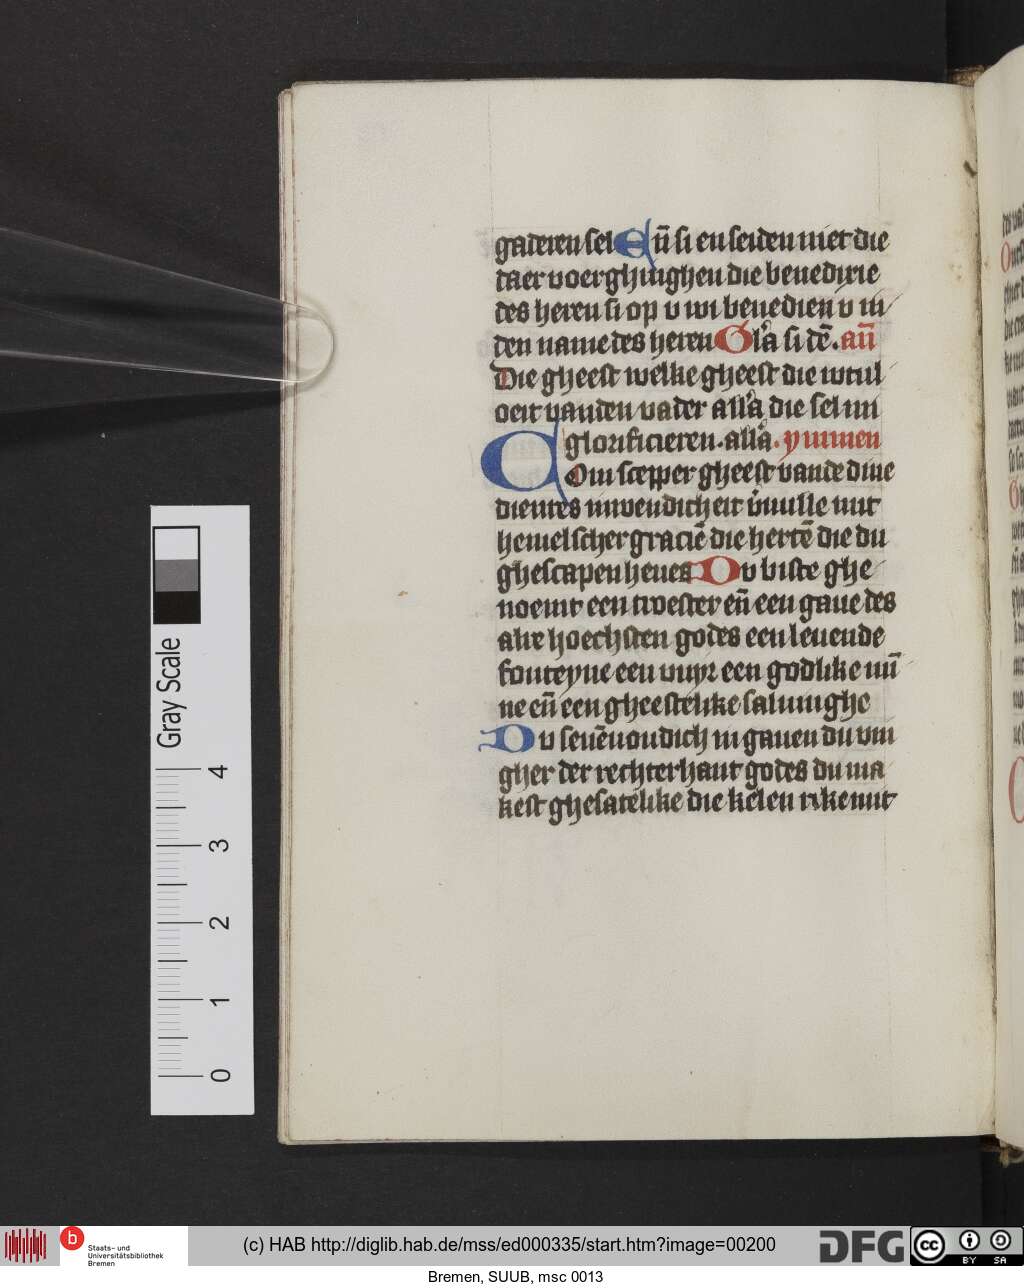 gaderen sel En̄ si en seiden niet die
daer voerghinghen die benedixie
des heren si op v wi benedien v in
den name des heren Gla si dē. an̄
Die gheest welke gheest die wtul
oeit vanden vader alla die sel mi
glorificieren. alla. ymmen
Com scepper gheest vande dine
dientes inwendicheit v̄uulle mit
hemelscher graciē die hertē die du
ghescapen heues Du biste ghe
noemt een troester en̄ een gaue des
alre hoechsten godes een leuende
fonteyne een vuyr een godlike min̄
ne en̄ een gheestelike saluinghe
Du seuēuondich in gauen du vin
gher der rechterhant godes du ma
kest ghesatelike die kelen rikemit
Gray Scale
0 1 2 3 4
b Staats- und
Universitätsbibliothek
Bremen
(c) HAB http://diglib.hab.de/mss/ed000335/start.htm?image=00200
DFG
cc BY SA
Bremen, SUUB, msc 0013